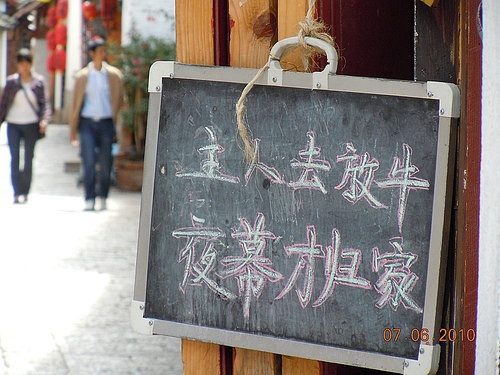 主人去放牛
夜幕才归家
07 06 2010